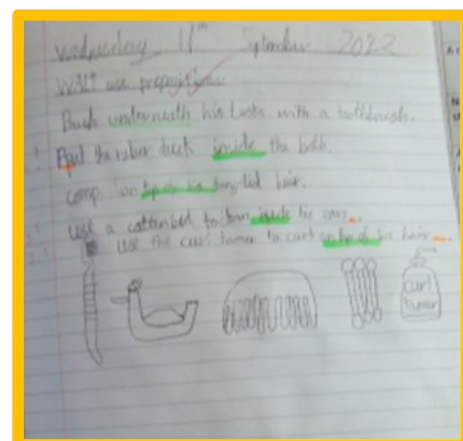 wednesday 11th September 2022
WALT use prepositions
Brush underneath his tusks with a toothbrush.
Put the ruber duck inside the bath.
comp on top of his tangled hair.
use a cotten bud to clean inside his ears.
use the curl tamer to curl on top of his hair.
curl
tamer